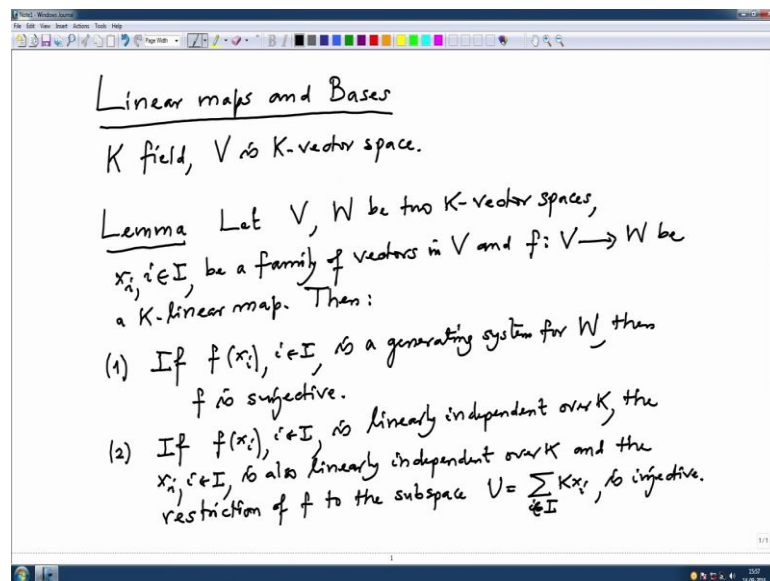 Note1 - Windows Journal
File Edit View Insert Actions Tools Help
Page Width
B I
Linear maps and Bases
K field, V is K-vector space.
Lemma Let V, W be two K-vector spaces,
xᵢ, i ∈ I, be a family of vectors in V and f: V → W be
a K-linear map. Then:
(1) If f(xᵢ), i ∈ I, is a generating system for W, then
f is surjective.
(2) If f(xᵢ), i ∈ I, is linearly independent over K, the
xᵢ, i ∈ I, is also linearly independent over K and the
restriction of f to the subspace U = ∑ Kxᵢ, is injective.
i∈I
1/1
1
15:57